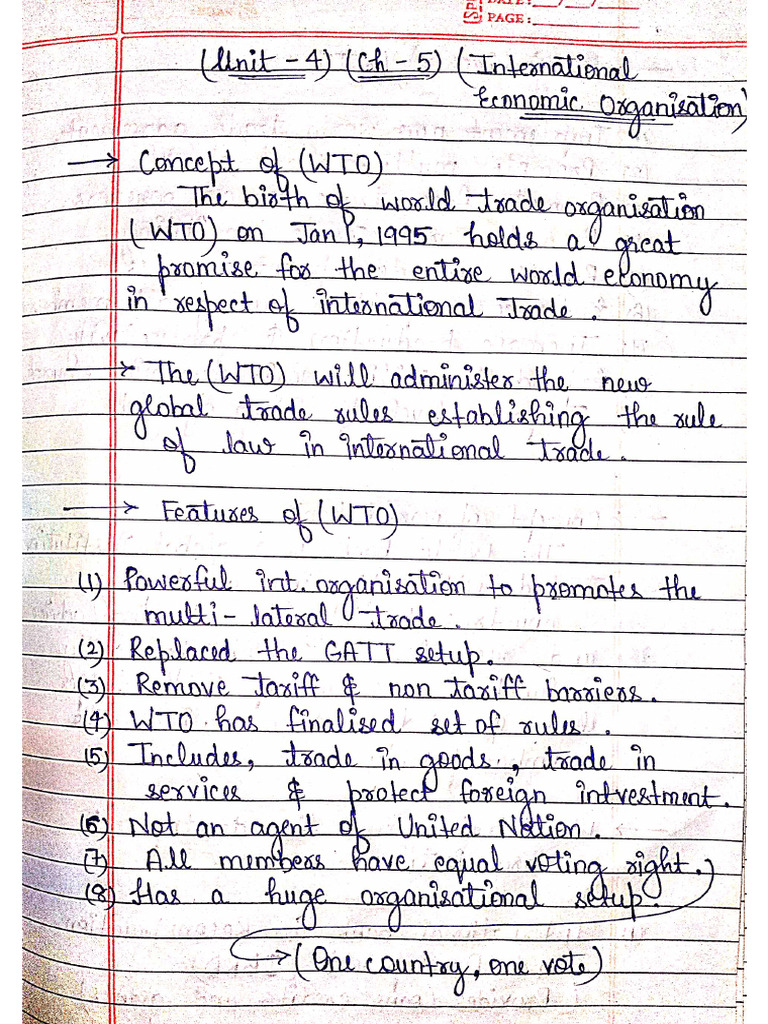 DATE: __/__/__
PAGE:
(Unit - 4) (Ch - 5) (International
Economic Organisation)
→ Concept of (WTO)
The birth of world trade organisation
(WTO) on Jan 1, 1995 holds a great
promise for the entire world economy
in respect of international Trade.
→ The (WTO) will administer the new
global trade rules establishing the rule
of law in international trade.
→ Features of (WTO)
(1) Powerful int. organisation to promotes the
multi-lateral trade.
(2) Replaced the GATT setup.
(3) Remove Tariff & non Tariff barriers.
(4) WTO has finalised set of rules.
(5) Includes, trade in goods, trade in
services & protect foreign intvestment.
(6) Not an agent of United Nation.
(7) All members have equal voting right.
(8) Has a huge organisational setup.
→ (One country, one vote)